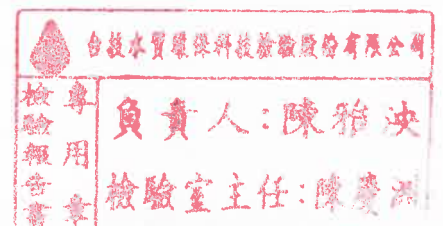 台技水質環保科技檢驗股份有限公司
檢驗報告書專用章
負責人：陳雅泱
檢驗室主任：陳